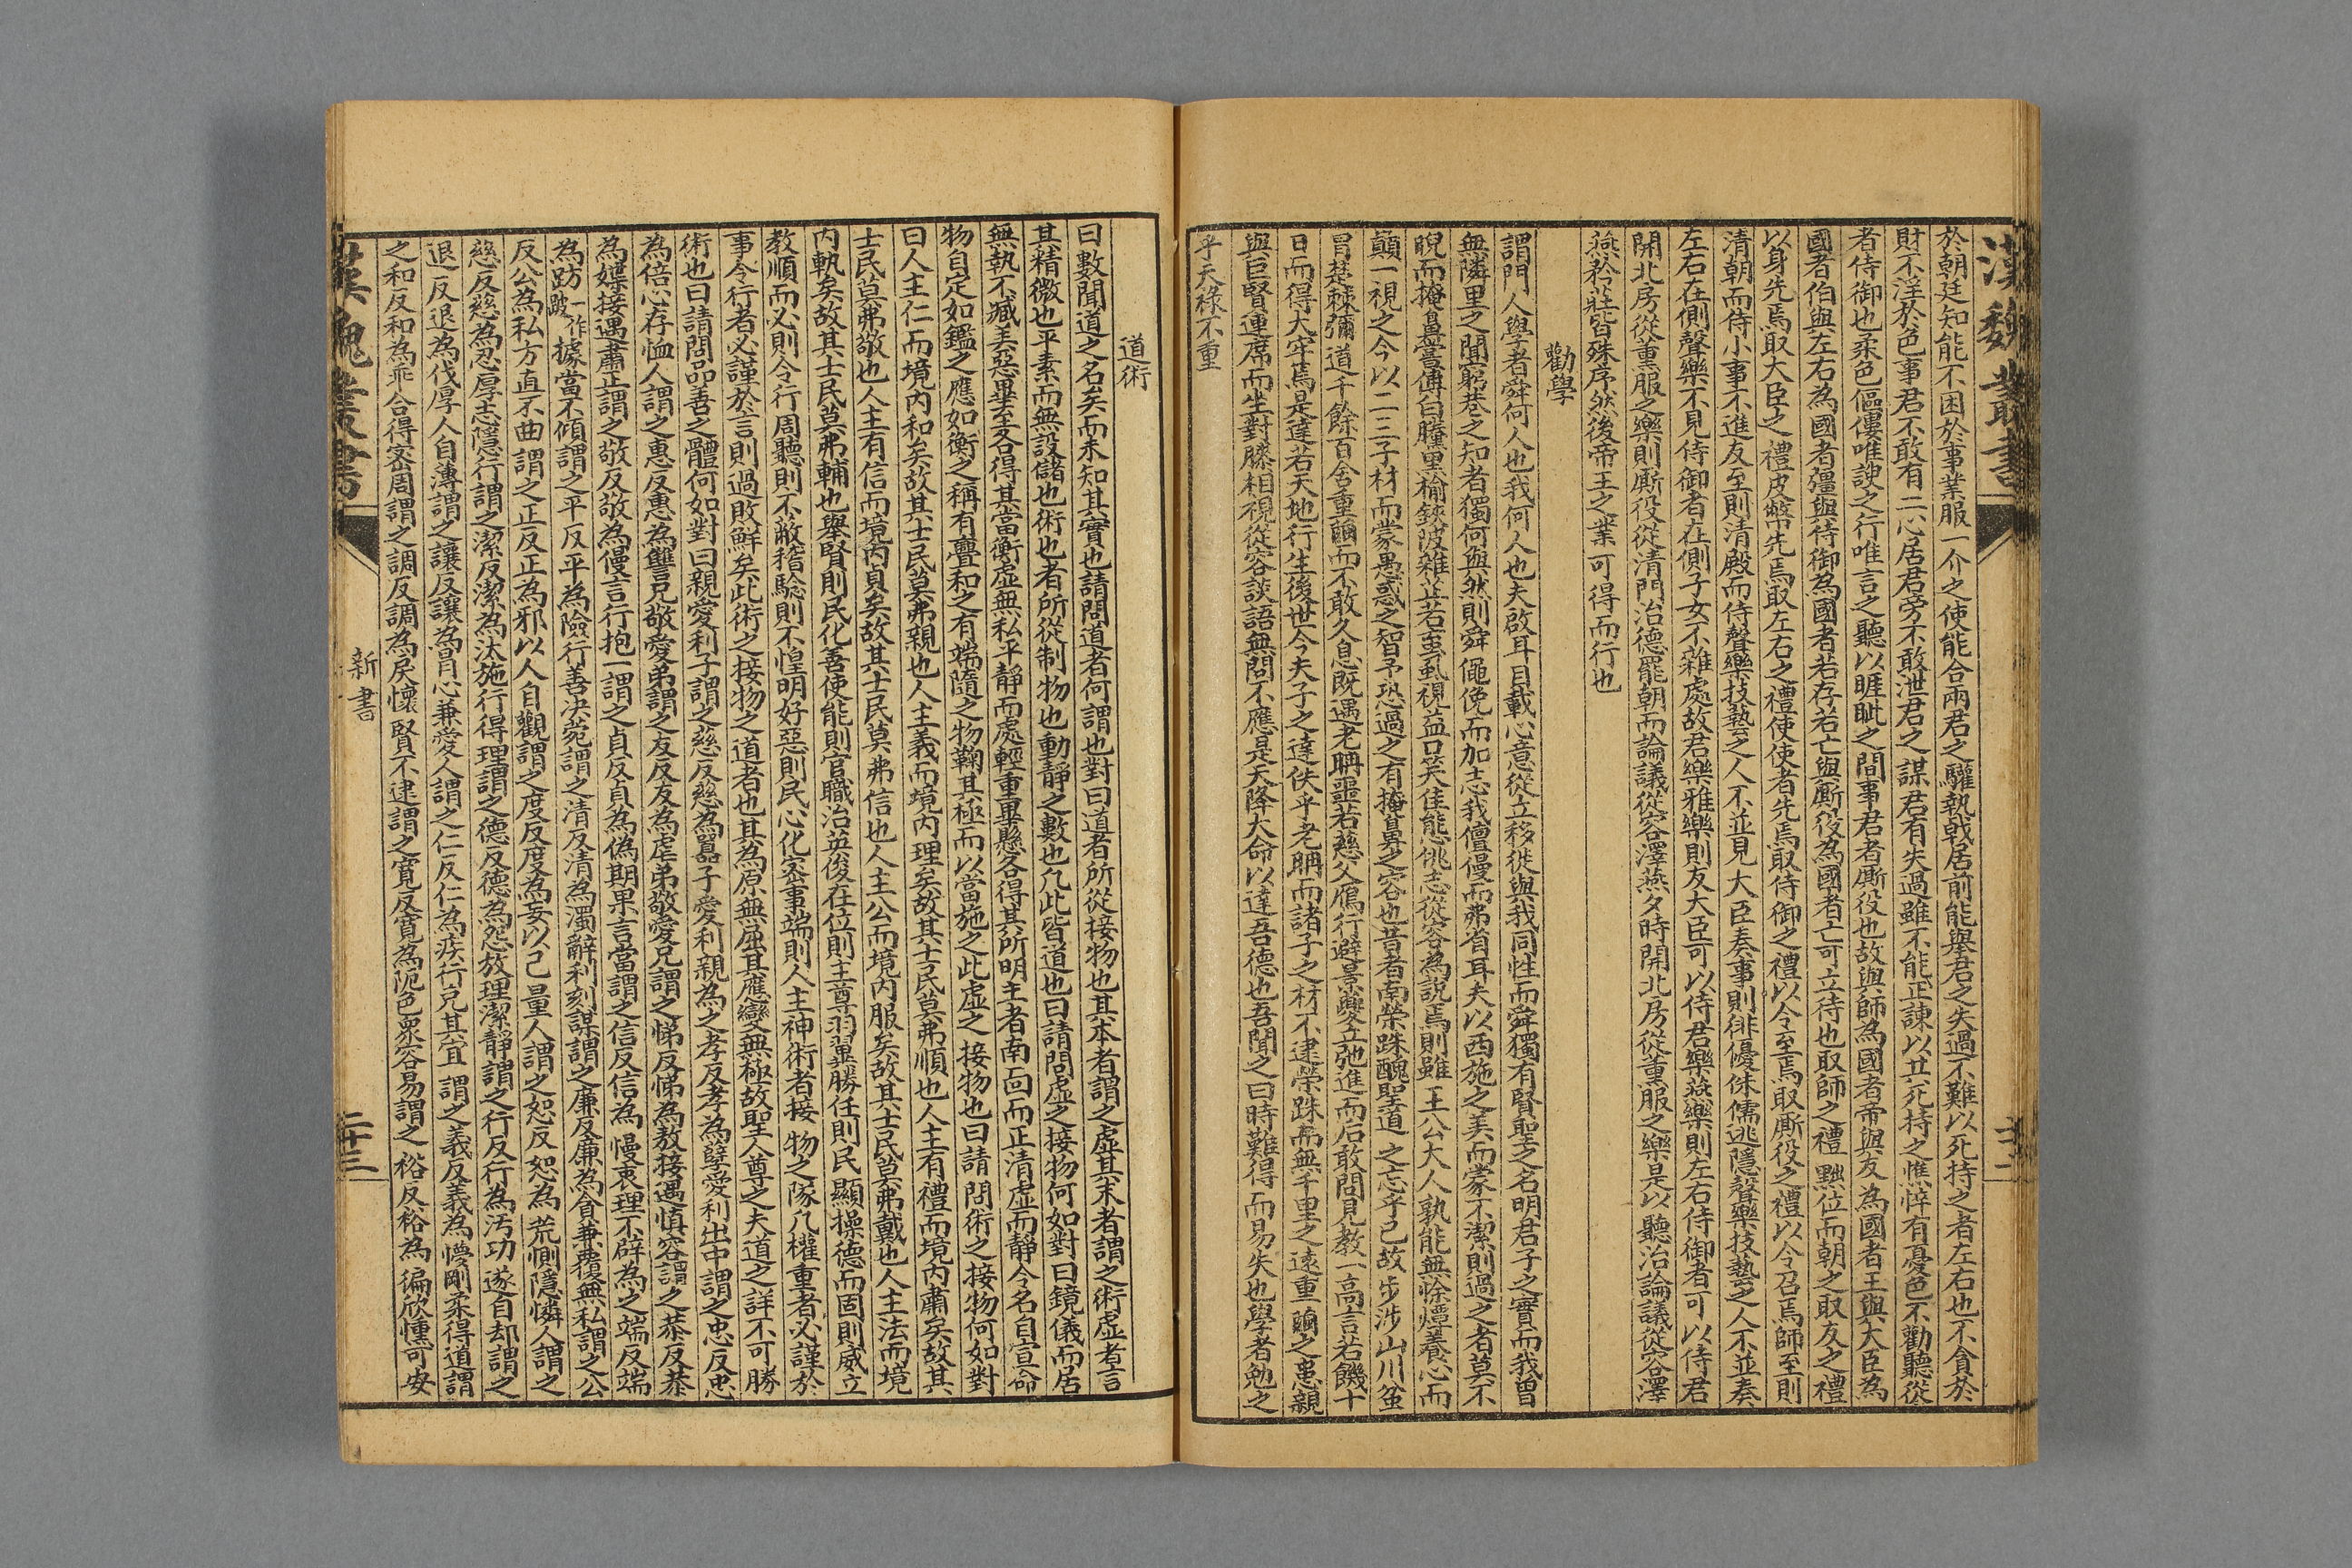 漢魏叢書
於朝廷知能不困於事業服一介之使能合兩君之驩執戟居前能舉君之失過不難以死持之者左右也不貪於
財不淫於色事君不敢有二心居君旁不敢泄君之謀君有失過雖不能正諫以其死持之憔悴有憂色不勸聽從
者侍御也柔色傴僂唯諛之行唯言之聽以睚眦之間事君者厮役也故與師為國者帝與友為國者王與大臣為
國者伯與左右為國者彊與侍御為國者若存若亡與厮役為國者亡可立待也取師之禮黜位而朝之取友之禮
以身先焉取大臣之禮皮幣先焉取左右之禮使使者先焉取侍御之禮以令至焉取厮役之禮以令召焉師至則
清朝而侍小事不進友至則清殿而侍聲樂技藝之人不並見大臣奏事則俳優侏儒逃隱聲樂技藝之人不並奏
左右在側聲樂不見侍御者在側子女不雜處故君樂雅樂則友大臣可以侍君樂燕樂則左右侍御者可以侍君
開北房從薰服之樂則厮役從清門治德罷朝而論議從容澤燕夕時開北房從薰服之樂是以聽治論議從容澤
燕矜莊皆殊序然後帝王之業可得而行也
勸學
謂門人學者舜何人也我何人也夫啟耳目載心意從立移徙與我同性而舜獨有賢聖之名明君子之實而我曾
無隣里之聞窮巷之知者獨何與然則舜僶俛而加志我儃僈而弗省耳夫以西施之美而蒙不潔則過之者莫不
睨而掩鼻嘗傅白黱黑榆鋏陂雜芷若䖟虱視益口笑佳能佻志從容為說焉則雖王公大人孰能無悇憛養心而
巔一視之今以二三子材而蒙愚惑之智予恐過之有掩鼻之容也昔者南榮跦醜聖道之忘乎己故步涉山川坌
冒楚棘彌道千餘百舍重繭而不敢久息旣遇老聃噩若慈父鴈行避景夔立弛進而后敢問見教一高言若饑十
日而得大牢焉是達若天地行生後世今夫子之達佚乎老聃而諸子之材不逮榮跦而無千里之遠重繭之患親
與巨賢連席而坐對膝相視從容談語無問不應是天降大命以達吾德也吾聞之曰時難得而易失也學者勉之
乎天祿不重
道術
曰數聞道之名矣而未知其實也請問道者何謂也對曰道者所從接物也其本者謂之虛其末者謂之術虛者言
其精微也平素而無設儲也術也者所從制物也動靜之數也凡此皆道也曰請問虛之接物何如對曰鏡儀而居
無執不臧美惡畢至各得其當衡虛無私平靜而處輕重畢懸各得其所明主者南面而正清虛而靜令名自宣命
物自定如鑑之應如衡之稱有舋和之有端隨之物鞠其極而以當施之此虛之接物也曰請問術之接物何如對
曰人主仁而境內和矣故其士民莫弗親也人主義而境內理矣故其士民莫弗順也人主有禮而境內肅矣故其
士民莫弗敬也人主有信而境內貞矣故其士民莫弗信也人主公而境內服矣故其士民莫弗戴也人主法而境
內軌矣故其士民莫弗輔也舉賢則民化善使能則官職治英俊在位則主尊羽翼勝任則民顯操德而固則威立
教順而必則令行周聽則不蔽稽騐則不惶明好惡則民心化密事端則人主神術者接物之隊凡權重者必謹於
事令行者必謹於言則過敗鮮矣此術之接物之道者也其為原無屈其應變無極故聖人尊之夫道之詳不可勝
術也曰請問品善之體何如對曰親愛利子謂之慈反慈為嚚子愛利親為之孝反孝為孼愛利出中謂之忠反忠
為倍心存恤人謂之惠反惠為讐兄敬愛弟謂之友反友為虐弟敬愛兄謂之悌反悌為敖接遇慎容謂之恭反恭
為媟接遇肅正謂之敬反敬為僈言行抱一謂之貞反貞為偽期果言當謂之信反信為慢衷理不辟為之端反端
為趽一作跛據當不傾謂之平反平為險行善決菀謂之清反清為濁辭利刻謀謂之廉反廉為貪兼覆無私謂之公
反公為私方直不曲謂之正反正為邪以人自觀謂之度反度為妄以己量人謂之恕反恕為荒惻隱憐人謂之
慈反慈為忍厚志隱行謂之潔反潔為汰施行得理謂之德反德為怨放理潔靜謂之行反行為汚功遂自却謂之
退反退為伐厚人自薄謂之讓反讓為冒心兼愛人謂之仁反仁為疾行充其宜謂之義反義為懜剛柔得道謂
之和反和為乖合得密周謂之調反調為戾懷賢不逮謂之寬反寬為阨包衆容易謂之裕反裕為褊欣懽可安
漢魏叢書
新書
二十三